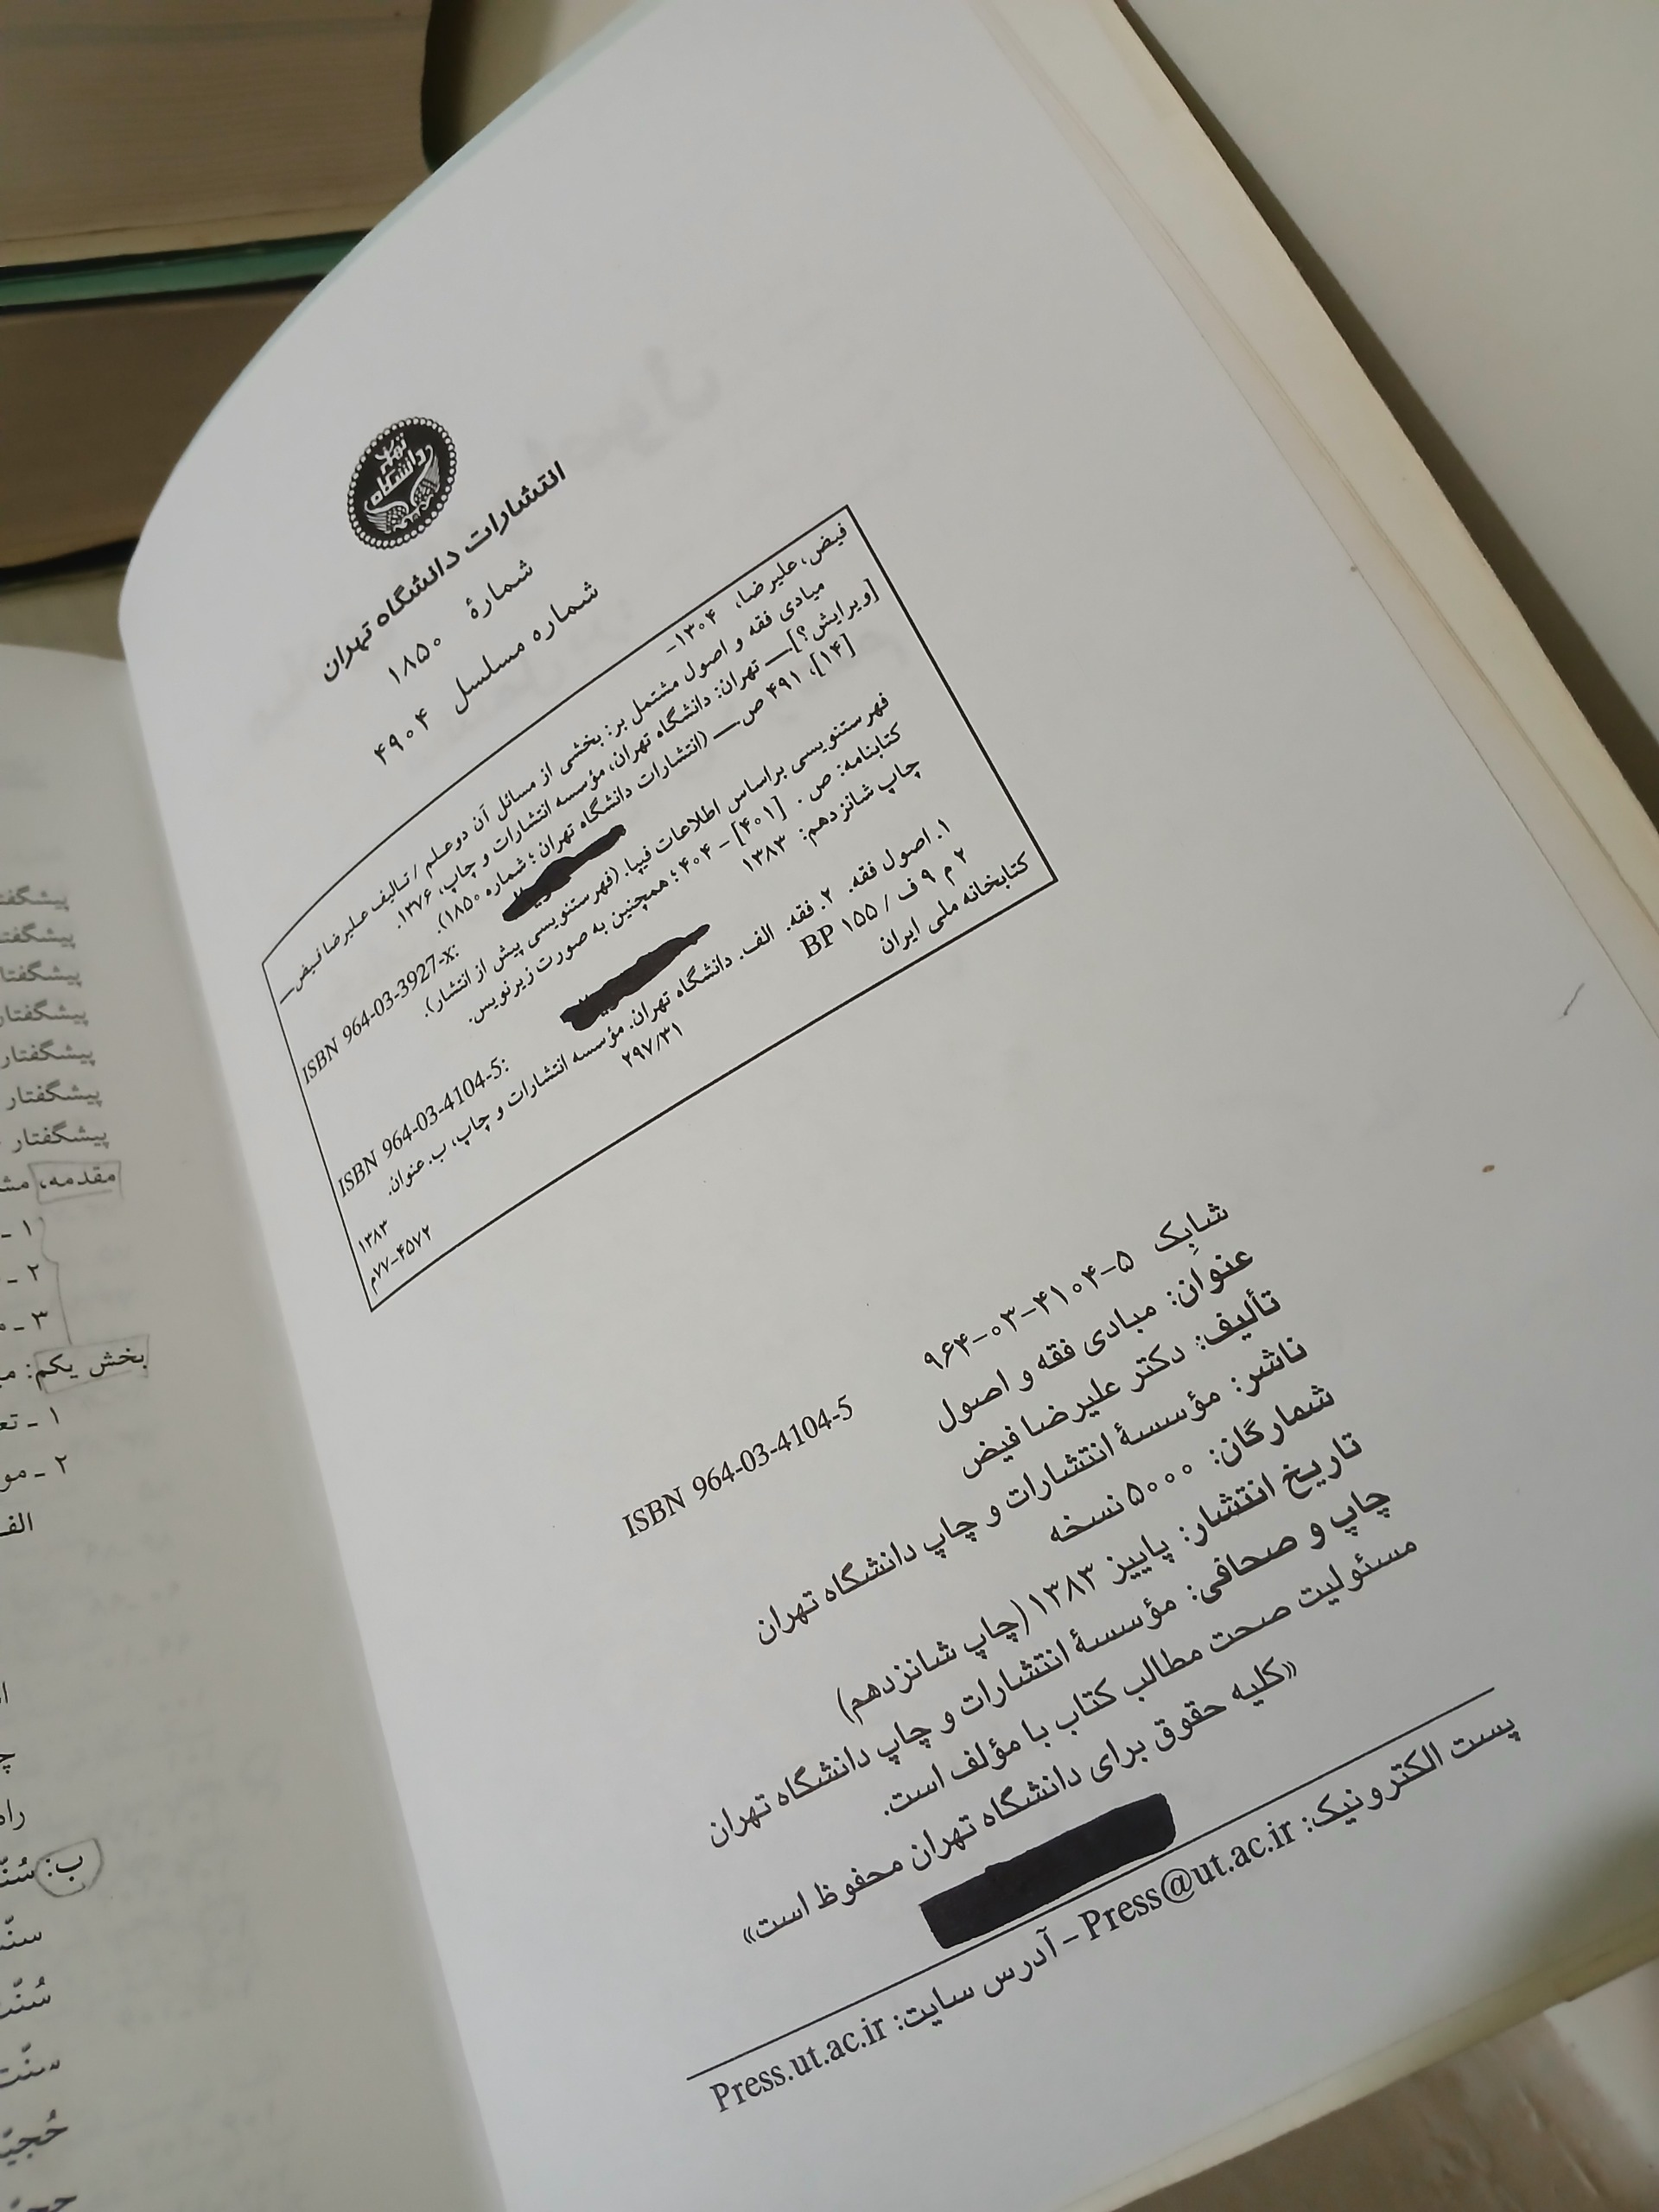 دانشگاه تهران
انتشارات دانشگاه تهران
شمارهٔ ۱۸۵۰
شماره مسلسل ۴۹۰۴
فیض، علیرضا، ۱۳۰۴-
مبادی فقه و اصول مشتمل بر: بخشی از مسائل آن دو علم / تألیف علیرضا فیض.—
[ویرایش؟]— تهران: دانشگاه تهران، مؤسسه انتشارات و چاپ، ۱۳۷۶.
[۱۴]، ۴۹۱ ص.— (انتشارات دانشگاه تهران؛ شماره ۱۸۵۰).
ISBN 964-03-3927-x:
فهرستنویسی براساس اطلاعات فیپا. (فهرستنویسی پیش از انتشار).
کتابنامه: ص. [۴۰۱] - ۴۰۴؛ همچنین به صورت زیرنویس.
چاپ شانزدهم: ۱۳۸۳
ISBN 964-03-4104-5:
۱. اصول فقه. ۲. فقه. الف. دانشگاه تهران. مؤسسه انتشارات و چاپ، ب. عنوان.
۲ م ۹ ف / ۱۵۵ BP ۲۹۷/۳۱ ۱۳۸۳
کتابخانه ملی ایران ۴۵۷۲-۷۷م
شابِک ۵-۴۱۰۴-۰۳-۹۶۴ ISBN 964-03-4104-5
عنوان: مبادی فقه و اصول
تألیف: دکتر علیرضا فیض
ناشر: مؤسسهٔ انتشارات و چاپ دانشگاه تهران
شمارگان: ۵۰۰۰ نسخه
تاریخ انتشار: پاییز ۱۳۸۳ (چاپ شانزدهم)
چاپ و صحافی: مؤسسهٔ انتشارات و چاپ دانشگاه تهران
مسئولیت صحت مطالب کتاب با مؤلف است.
«کلیه حقوق برای دانشگاه تهران محفوظ است»
پست الکترونیک: Press@ut.ac.ir - آدرس سایت: Press.ut.ac.ir
پیشگفتار
پیشگفتار
پیشگفتار
پیشگفتار
پیشگفتار
مقدمه،
۱ -
۲ -
۳ -
بخش یکم:
۱ -
۲ -
الف
ب: